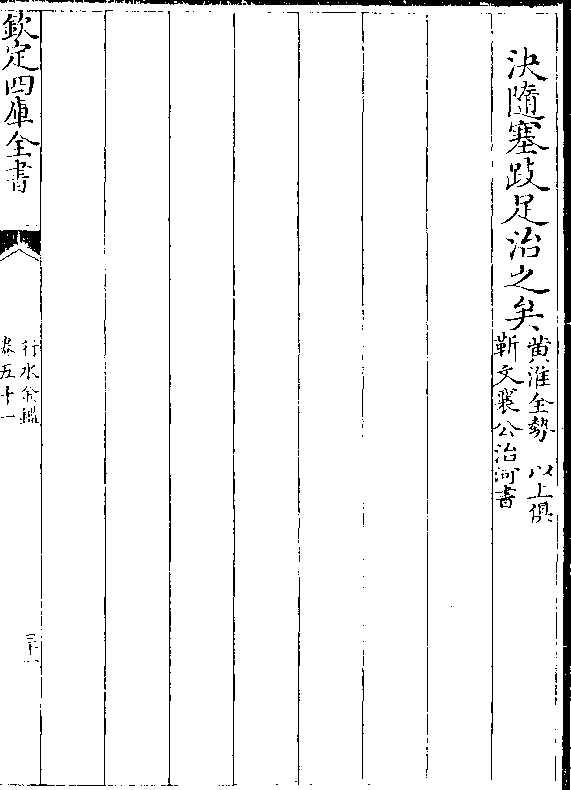 決隨塞跂足治之矣
黄淮全勢　以上俱
靳文襄公治河書
欽定四庫全書
行水金鑑
卷五十一
三十一